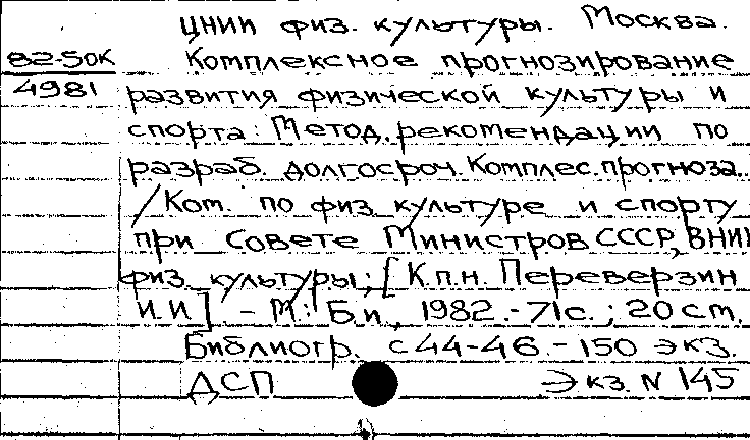 ЦНИИ физ. культуры. Москва.
82-50К Комплексное прогнозирование
4981 развития физической культуры и
спорта: Метод. рекомендации по
разраб. долгосроч. Комплес. прогноза.
/ Ком. по физ. культуре и спорту
при Совете Министров СССР, ВНИИ
физ. культуры; [К.п.н. Переверзин
И.И]. - М.: Б.и., 1982. - 71с.; 20 ст.
Библиогр. с 44-46. - 150 экз.
ДСП Экз. N 145